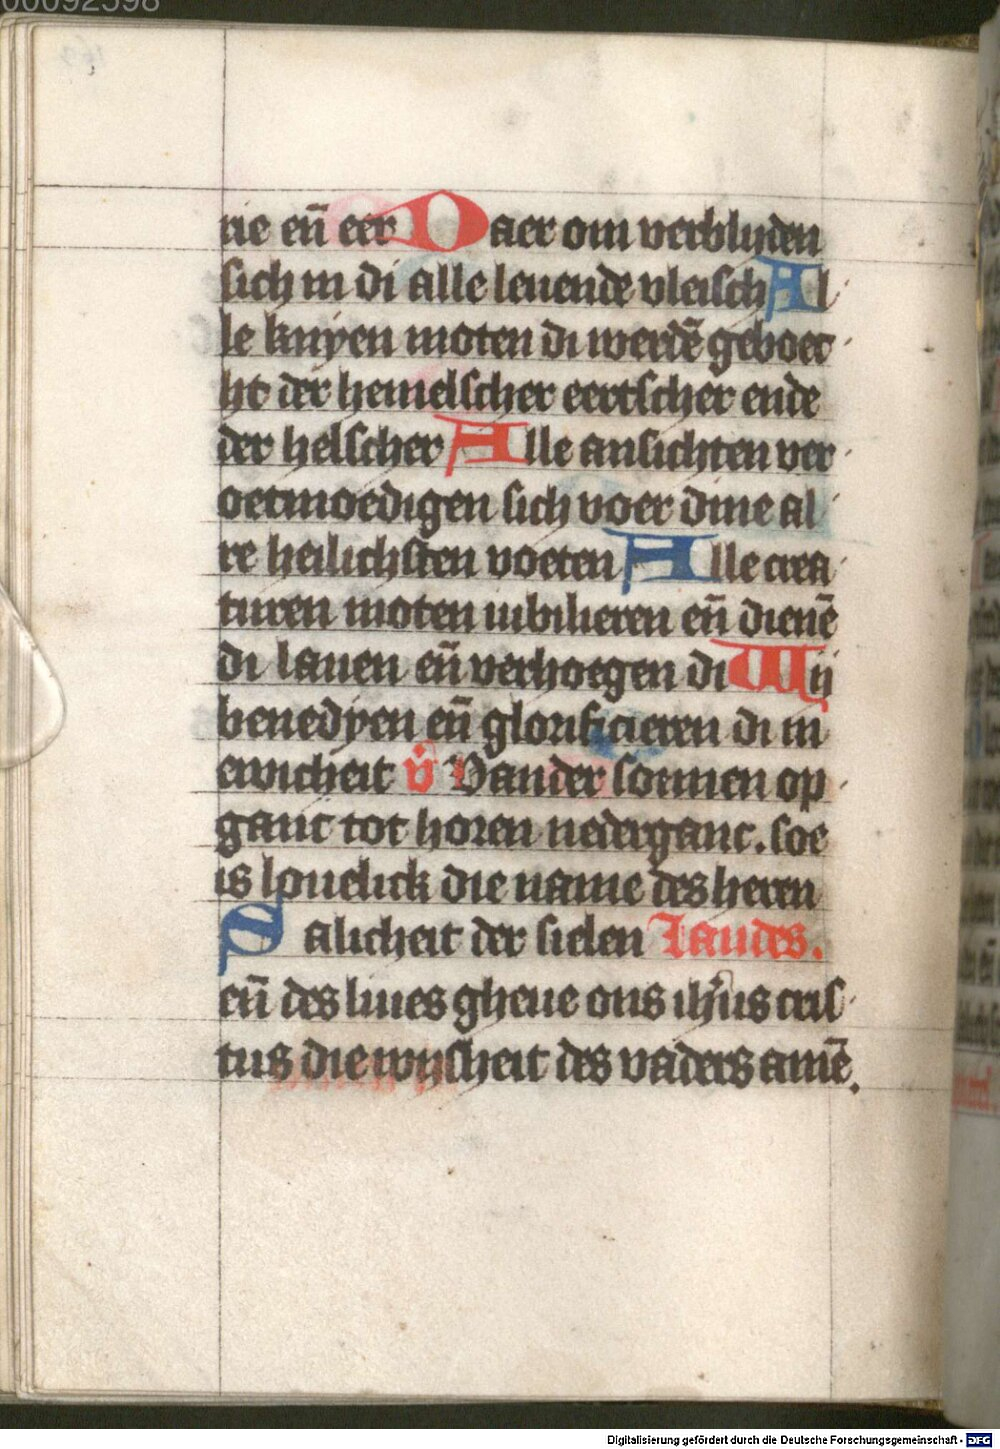 00092598
rie en̄ eer Daer om verblijden
sich in di alle leuende vleisch Al
le knyen moten di werdē geboec
ht der hemelscher eertscher ende
der helscher Alle ansichten ver
oetmoedigen sich voer dine al
re heilichsten voeten Alle crea
turen moten iubilieren en̄ dienē
di lauen en̄ verhoegen di Wij
benedyen en̄ glorificieren di in
ewicheit v̊ Vander sonnen op
ganc tot horen nederganc. soe
is louelick die name des heren
Salicheit der sielen Laudes.
en̄ des liues gheue ons ih̄us cris
tus die wijsheit des vaders amē.
Digitalisierung gefördert durch die Deutsche Forschungsgemeinschaft - DFG